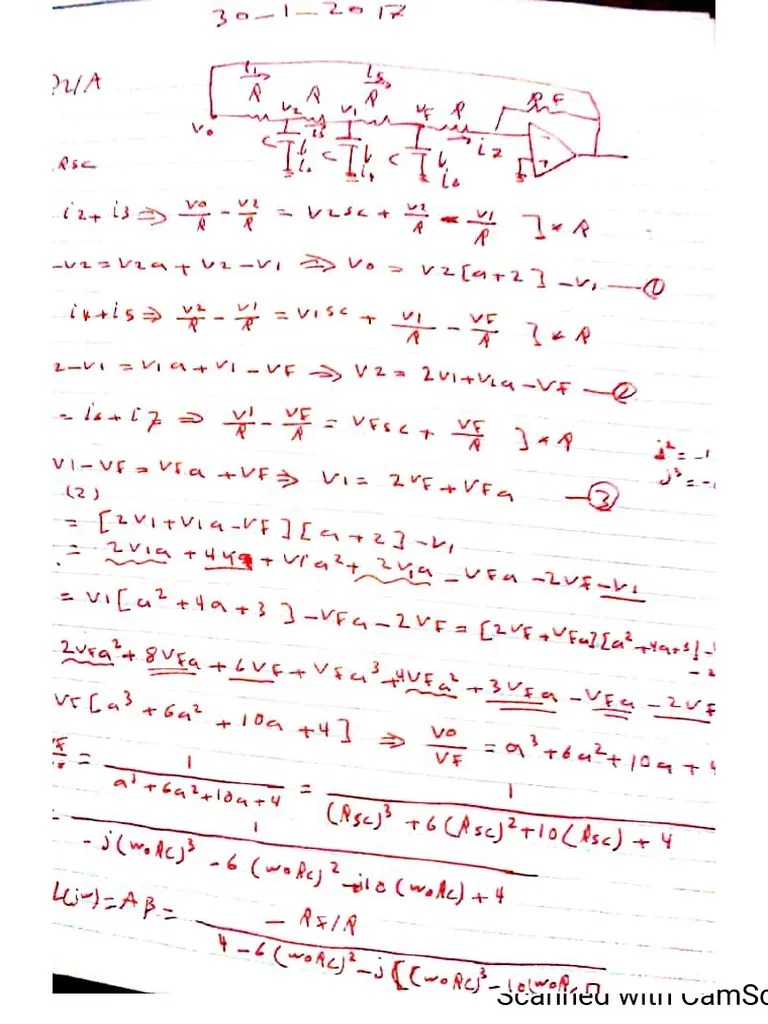 30-1-2017
2/A
i1
R
i5
R
R
V2
V1
VF
R
RF
Vo
i3
i2
C
C
C
i4
i6
RSC
i2+i3 ⇒ Vo/R - V2/R = V2SC + V2/R - V1/R ] * R
-V2 = V2a + V2 - V1 ⇒ Vo = V2[a+2] - V1 —①
i4+i5 ⇒ V2/R - V1/R = V1SC + V1/R - VF/R ] * R
2-V1 = V1a + V1 - VF ⇒ V2 = 2V1+V1a-VF —②
= i6+i7 ⇒ V1/R - VF/R = VFSC + VF/R ] * R
j² = -1
j³ = -
V1-VF = VFa + VF ⇒ V1 = 2VF + VFa —③
(2)
= [2V1+V1a-VF][a+2] - V1
= 2V1a + 4V1 + V1a² + 2V1a - VFa - 2VF - V1
= V1[a²+4a+3] - VFa - 2VF = [2VF+VFa][a²+4a+3] -
2VFa² + 8VFa + 6VF + VFa³ + 4VFa² + 3VFa - VFa - 2VF
VF[a³+6a²+10a+4] ⇒ Vo/VF = a³+6a²+10a+4
= 1/(a³+6a²+10a+4) = 1/((RSC)³+6(RSC)²+10(RSC)+4)
1/(-j(woRC)³-6(woRC)²+j10(woRC)+4)
L(jw)=Aβ= -RF/R / 4-6(woRC)²-j[(woRC)³-10(woRC)]
Scanned with CamSc